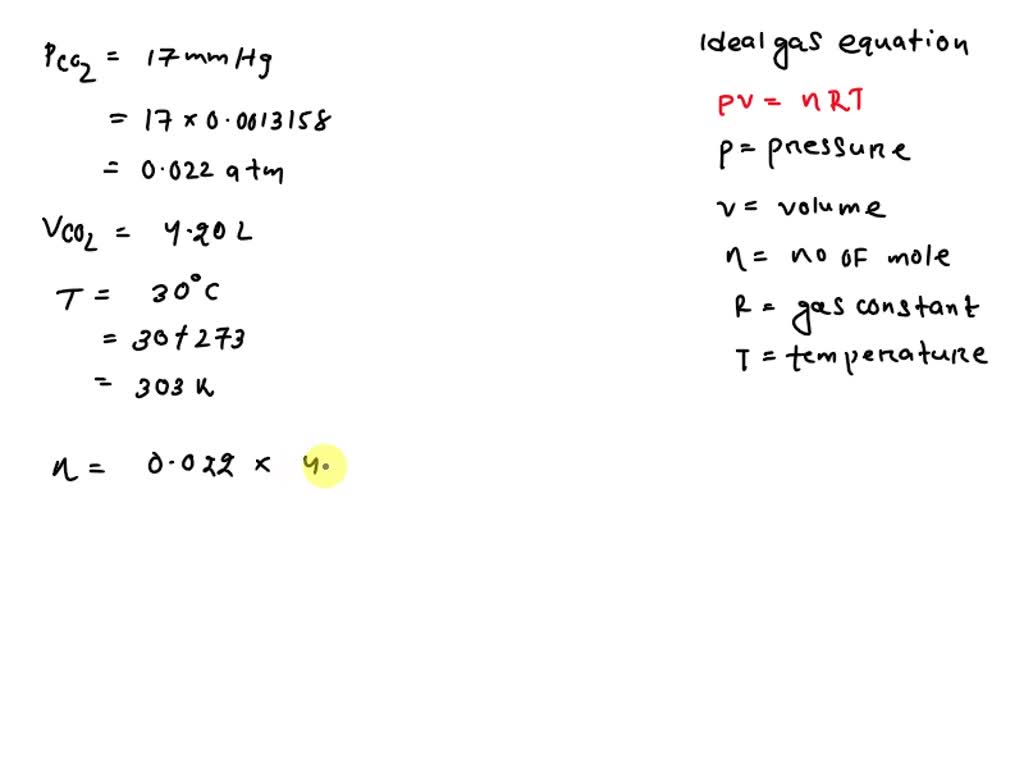 PCO2 = 17 mm Hg
= 17 × 0.0013158
= 0.022 atm
VCO2 = 4.20 L
T = 30°C
= 30+273
= 303 K
n = 0.022 × 4.
Ideal gas equation
PV = nRT
P = pressure
V = volume
n = no OF mole
R = gas constant
T = temperature